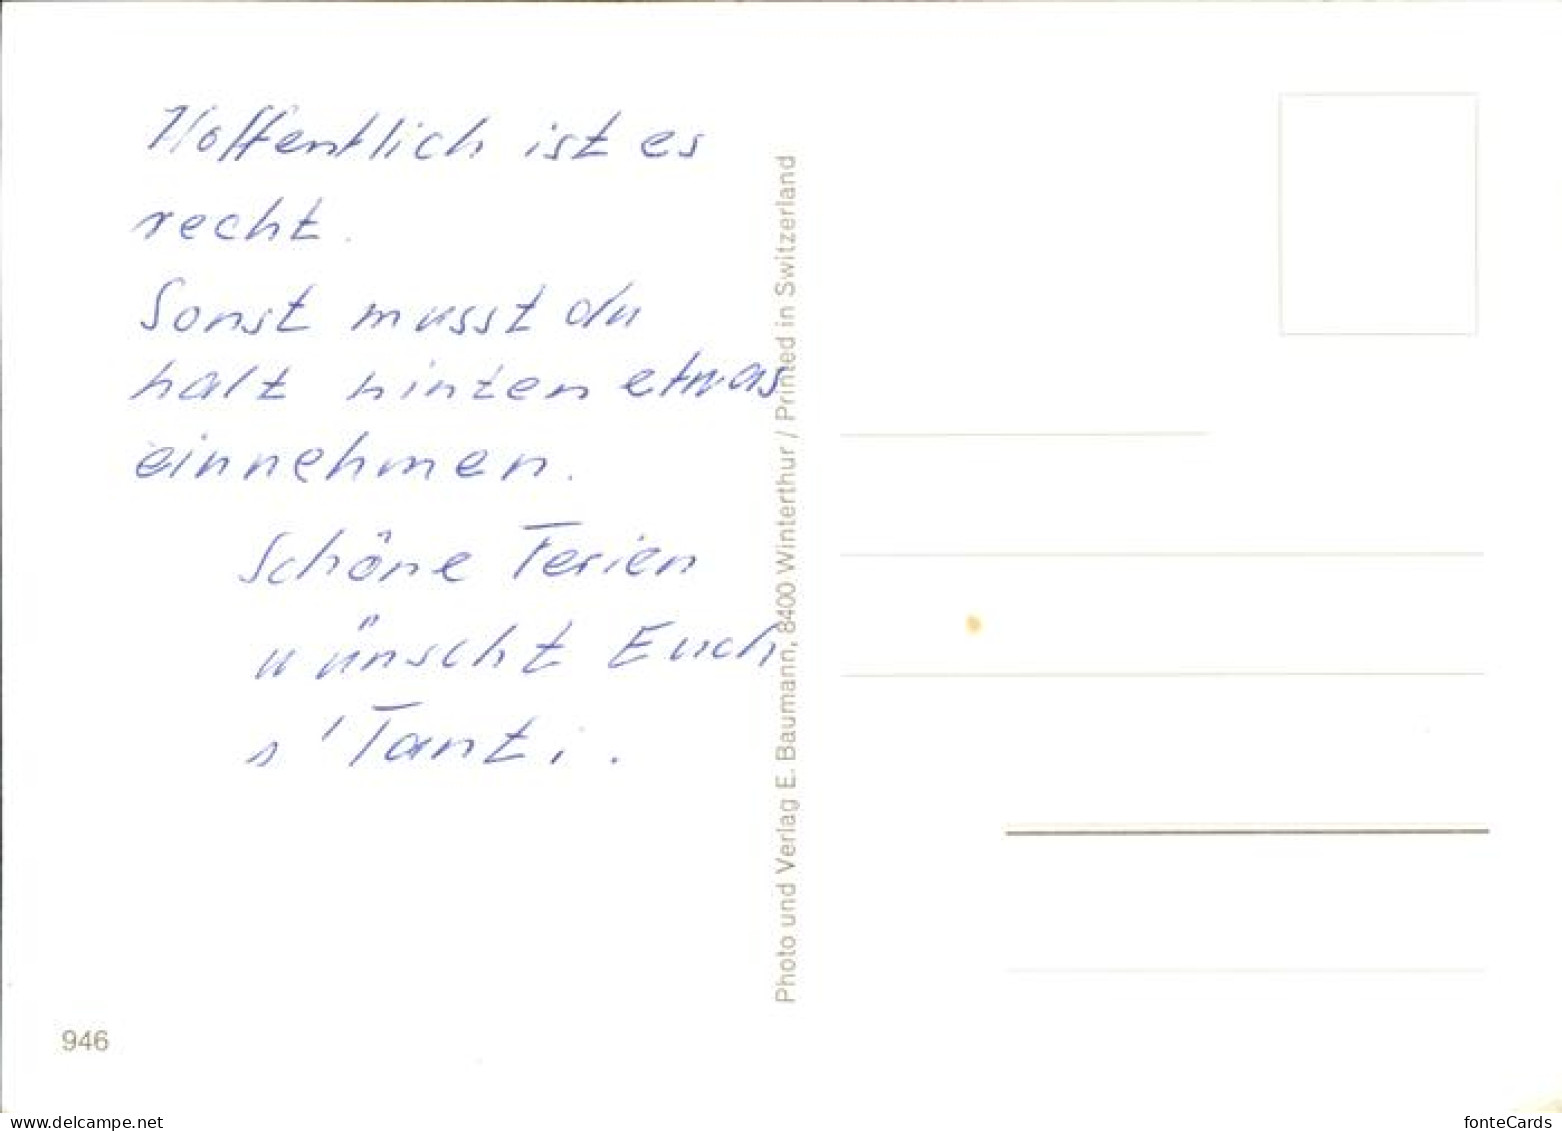 Hoffentlich ist es
recht.
Sonst musst du
halt hinten etwas
einnehmen.
Schöne Ferien
wünscht Euch
s'Tanti.
Photo und Verlag E. Baumann, 8400 Winterthur / Printed in Switzerland
946
www.delcampe.net
fonteCards